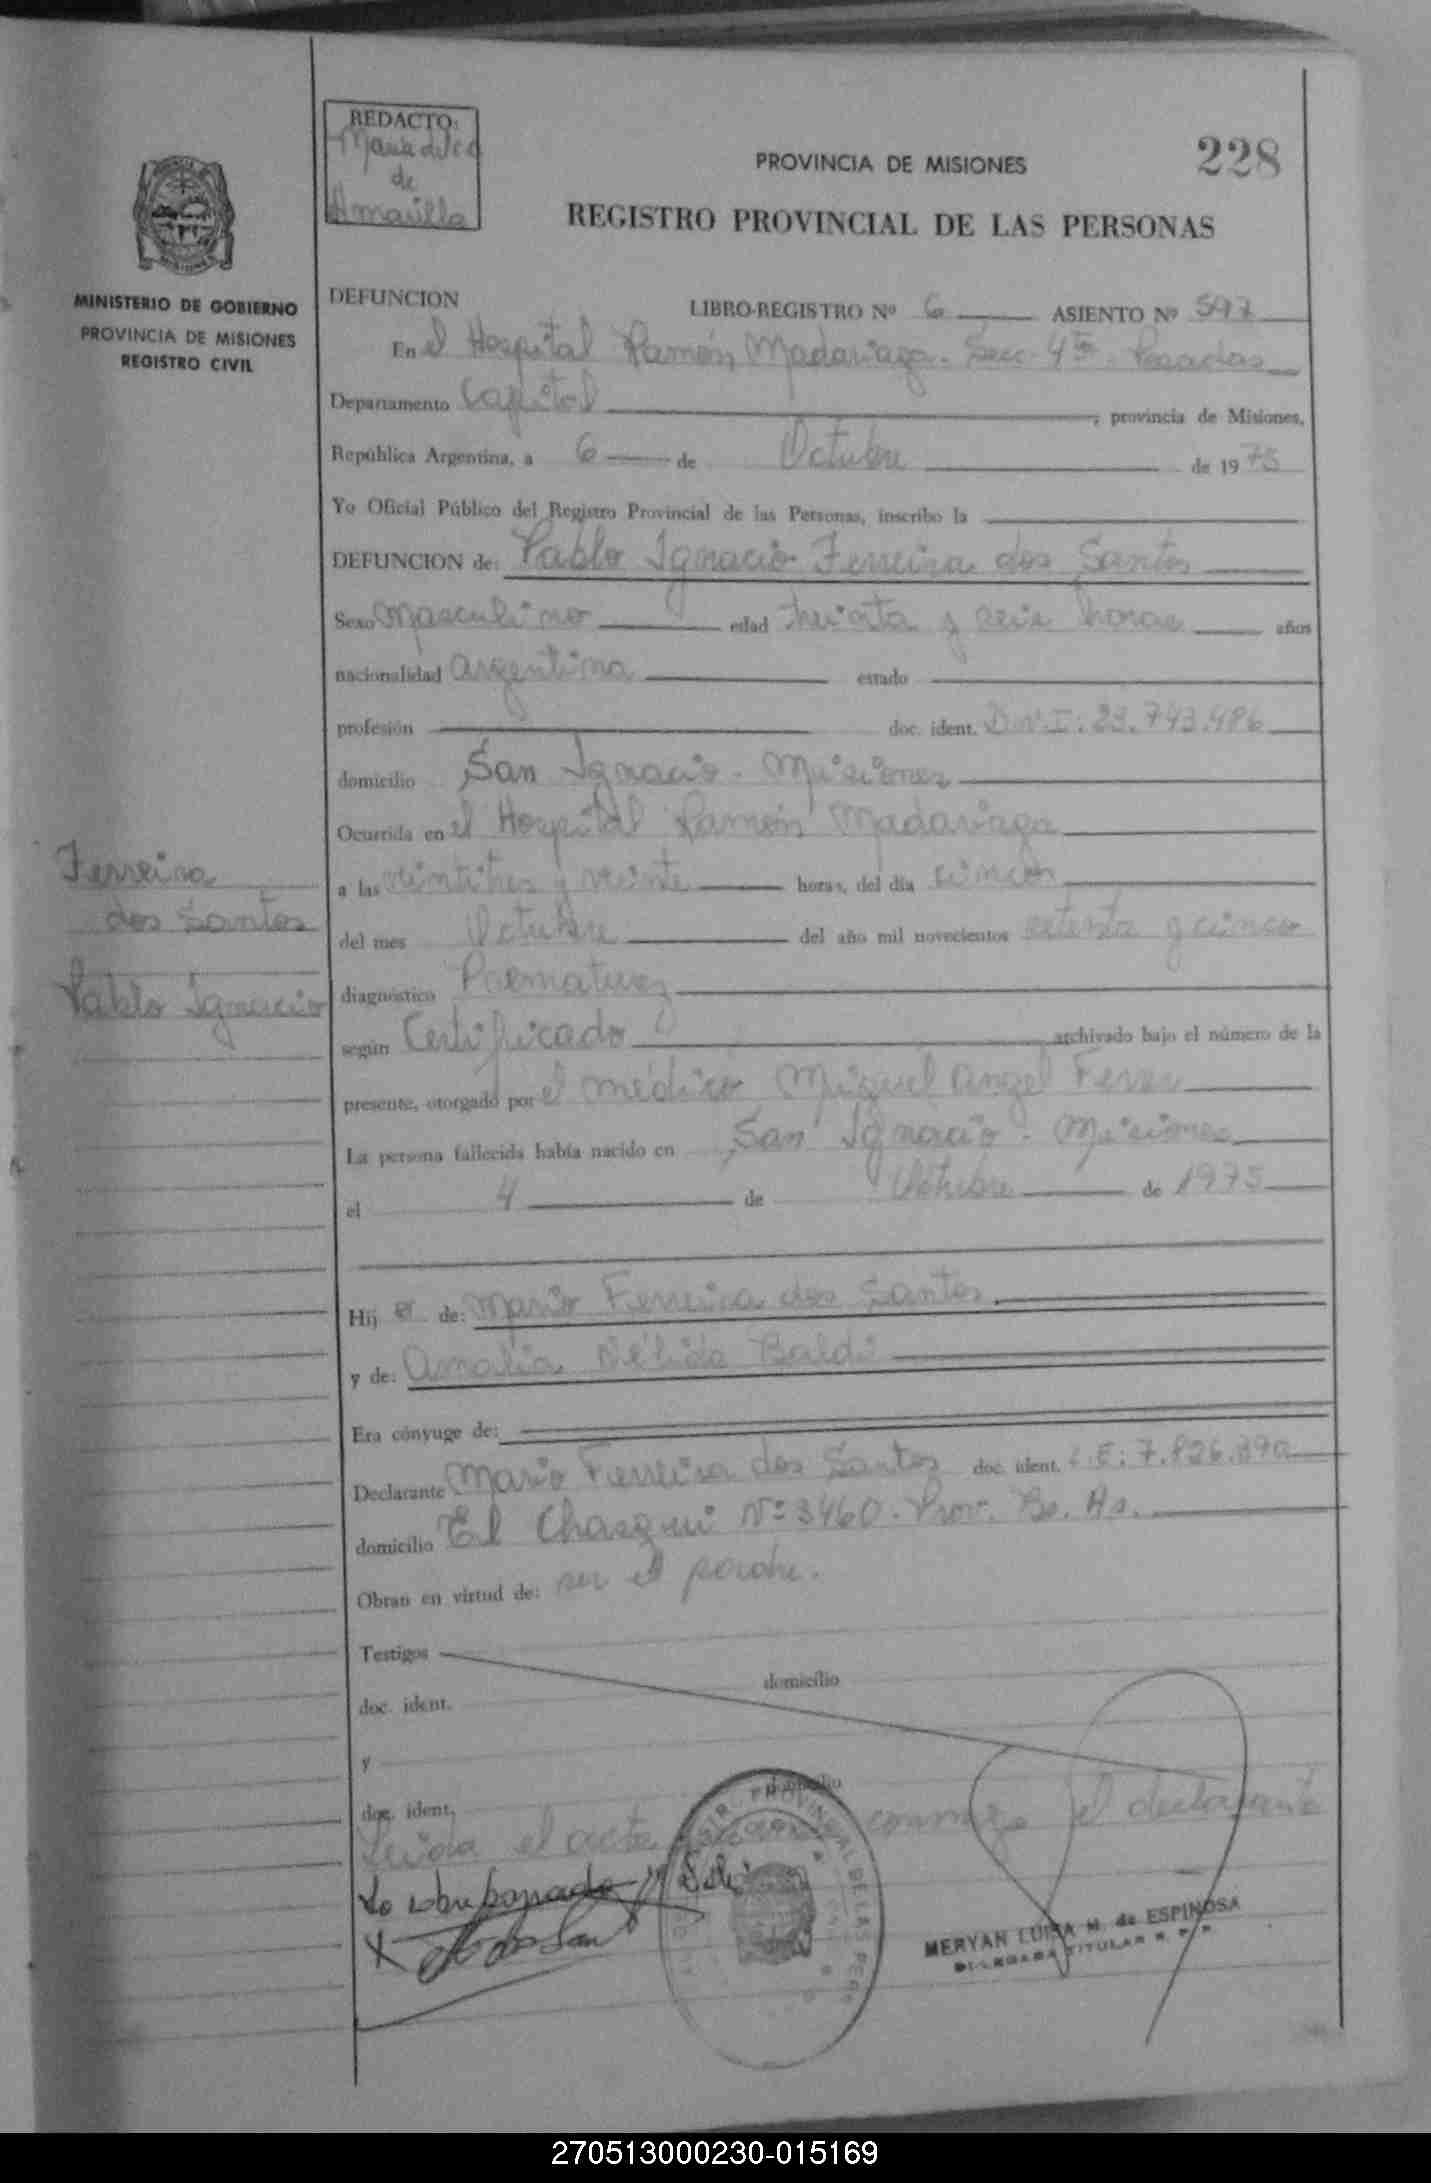 REDACTO:
Maria
de
Amarilla
PROVINCIA DE MISIONES
228
REGISTRO PROVINCIAL DE LAS PERSONAS
MINISTERIO DE GOBIERNO
PROVINCIA DE MISIONES
REGISTRO CIVIL
DEFUNCION LIBRO-REGISTRO Nº 6 ASIENTO Nº 597
En el Hospital Ramón Madariaga. Secc. 4ta. Posadas
Departamento Capital, provincia de Misiones,
República Argentina, a 6 de Octubre de 1975
Yo Oficial Público del Registro Provincial de las Personas, inscribo la
DEFUNCION de: Pablo Ignacio Ferreira dos Santos
Sexo Masculino edad treinta y seis horas años
nacionalidad argentina estado
profesión doc. ident. D.N.I: 23.743.486
domicilio San Ignacio - Misiones
Ocurrida en el Hospital Ramón Madariaga
a las veintitres y veinte horas, del día cinco
del mes Octubre del año mil novecientos setenta y cinco
diagnóstico Prematurez
según Certificado archivado bajo el número de la
presente, otorgado por el médico Miguel Angel Ferrer
La persona fallecida había nacido en San Ignacio - Misiones
el 4 de Octubre de 1975
Hij o de: Mario Ferreira dos Santos
y de: Amalia Nélida Baldi
Era cónyuge de:
Declarante Mario Ferreira dos Santos doc. ident. L.E: 7.826.390
domicilio El Chasqui Nº 3460. Prov. Bs. As.
Obran en virtud de: ser el padre.
Testigos
domicilio
doc. ident.
y
domicilio
doc. ident.
Leida el acta conmigo el declarante
Ferreira
dos Santos
Pablo Ignacio
MERYAN LUISA M. de ESPINOSA
DELEGADA TITULAR R. P. P.
270513000230-015169